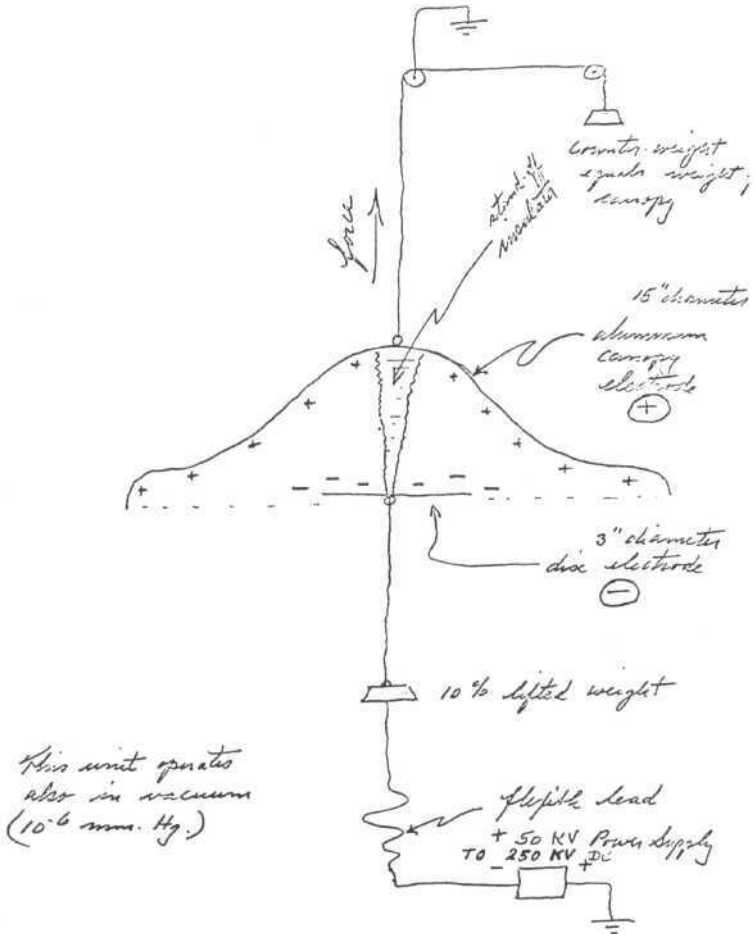 Counter-weight
equals weight
canopy
force
insulator
15" diameter
aluminum
canopy
electrode
+
+ + + + + + + + + + +
- - - - - - -
3" diameter
disc electrode
-
10% lifted weight
This unit operates
also in vacuum
(10-6 mm. Hg.)
flexible lead
+ 50 KV Power Supply
TO 250 KV DC
- +